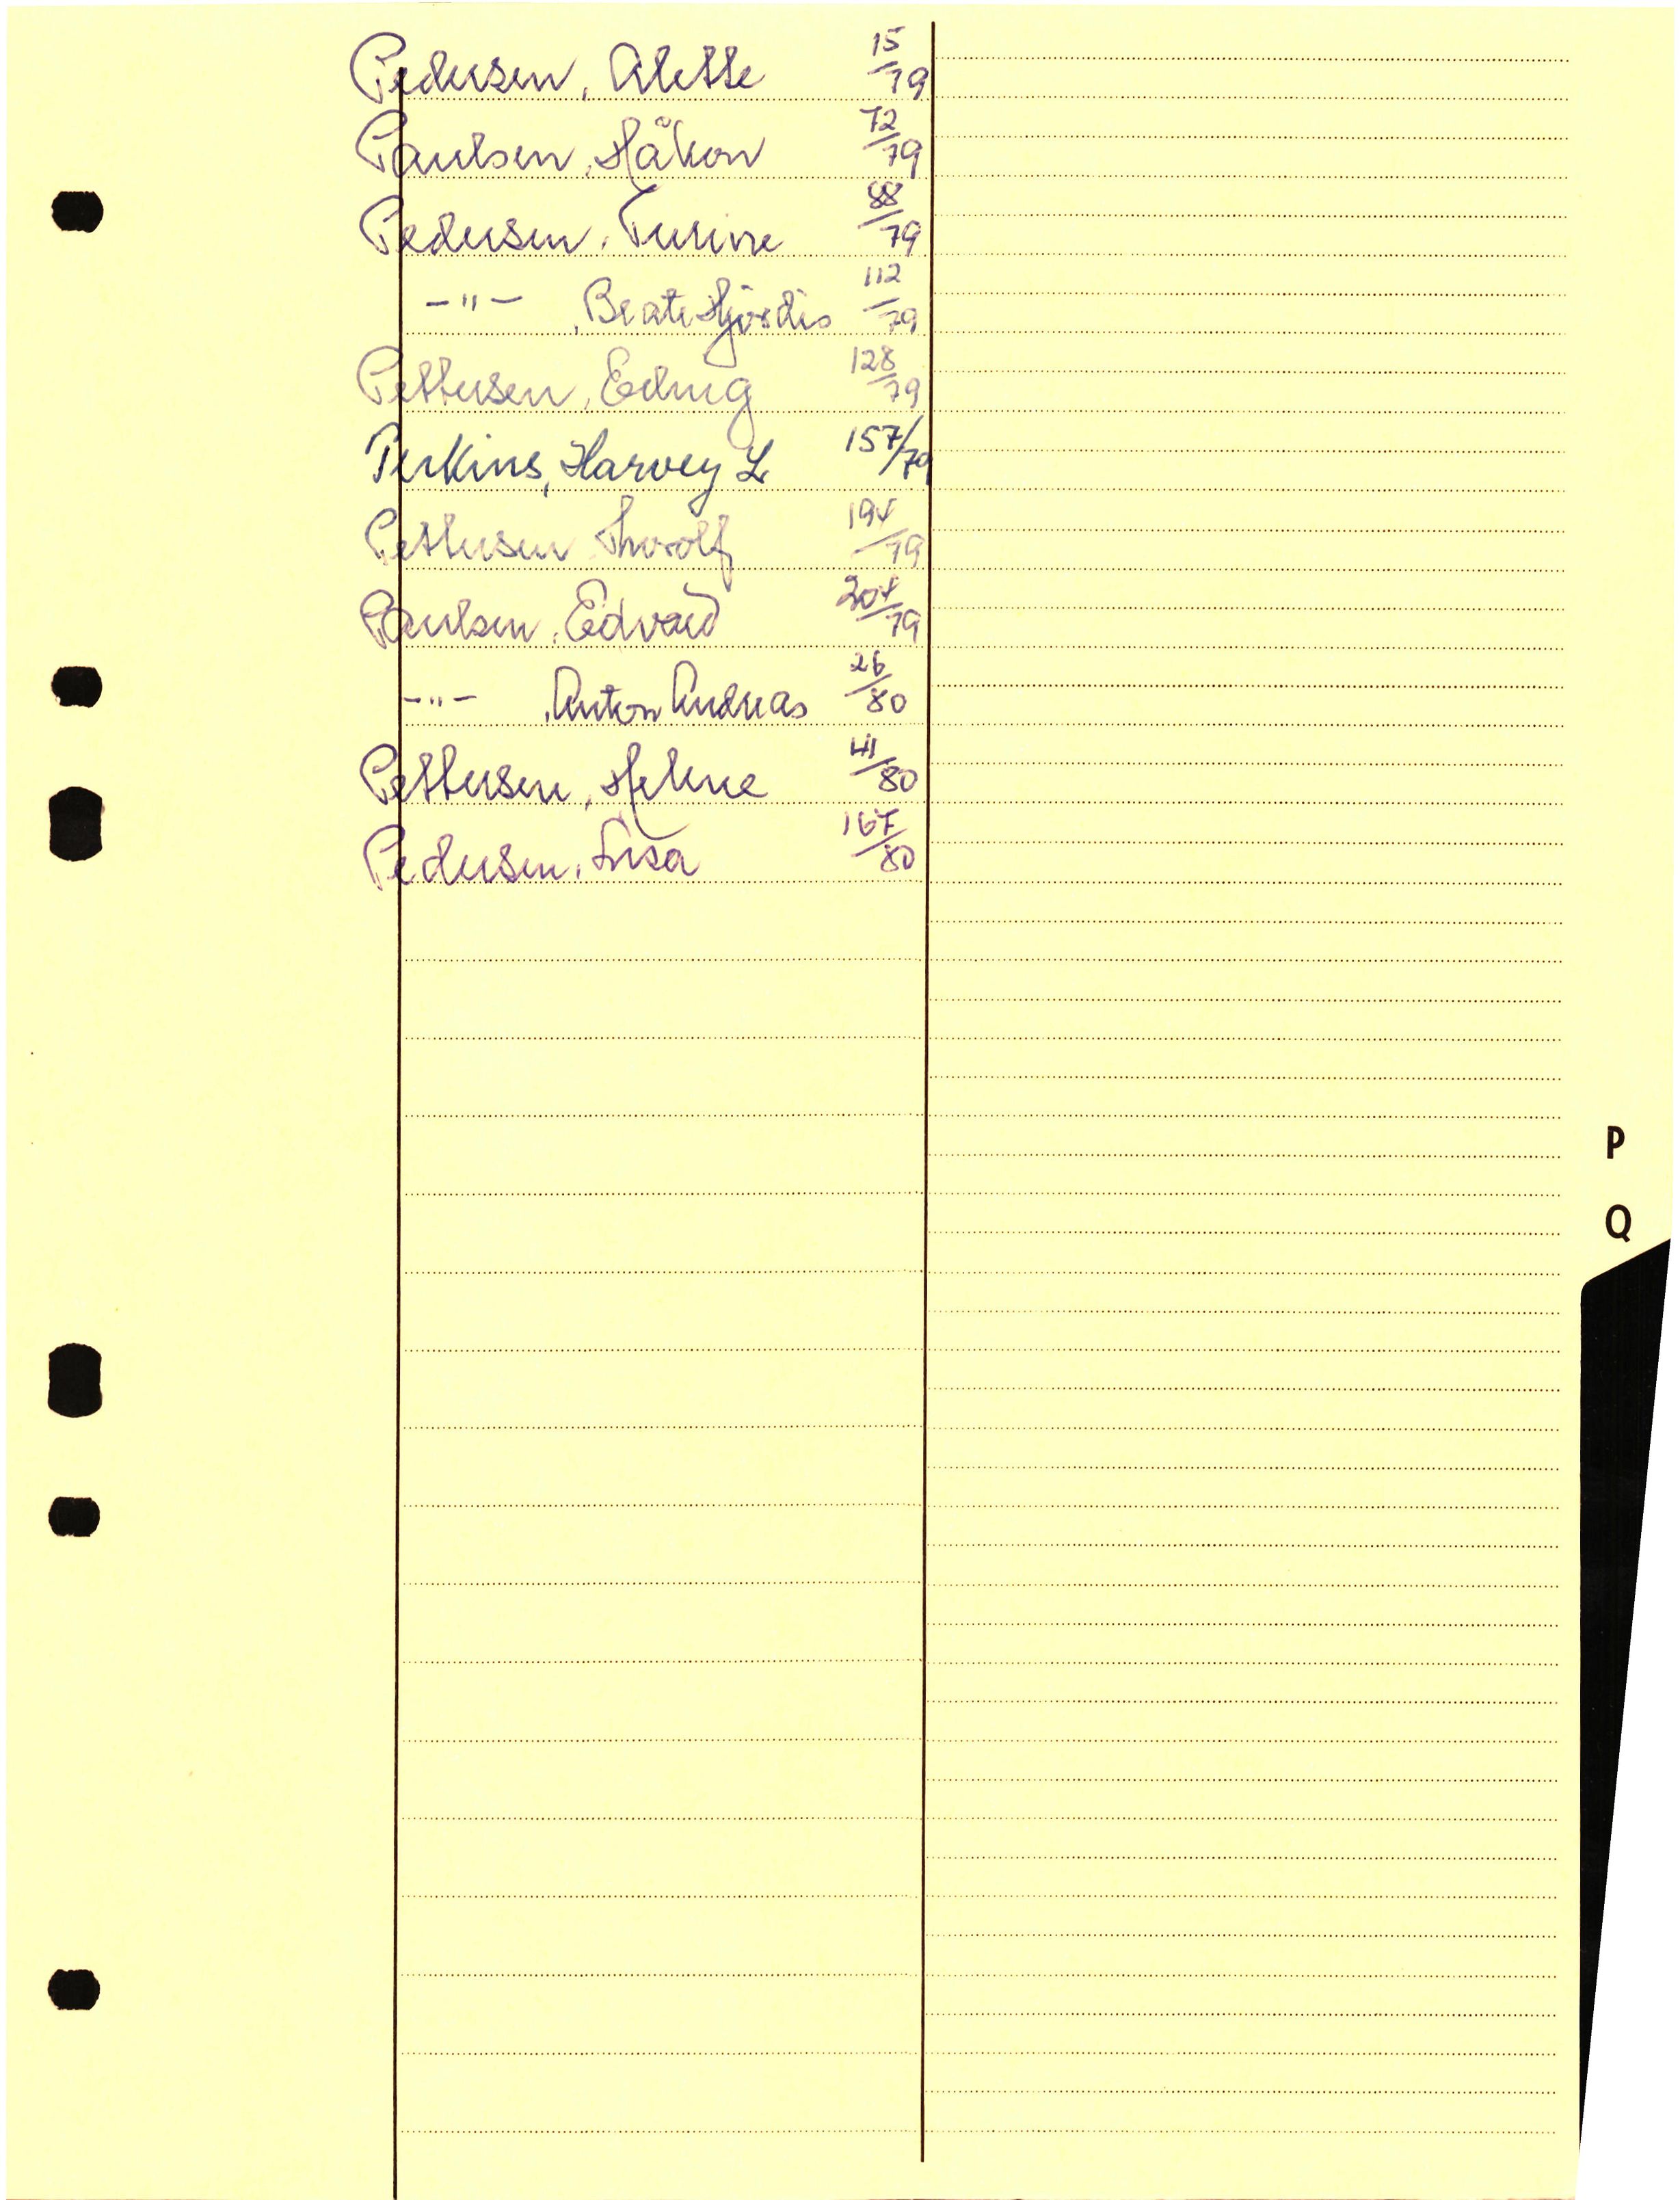 Pedersen, Alette 15/79
Paulsen, Håkon 72/79
Pedersen, Turine 88/79
-"- , Beate Hjördis 112/79
Pettersen, Eding 128/79
Perkins, Harvey L 157/79
Pettersen Thorolf 194/79
Paulsen, Edvard 204/79
-"- , Anton Andreas 26/80
Pettersen, Helene 41/80
Pedersen, Lisa 167/80
P
Q